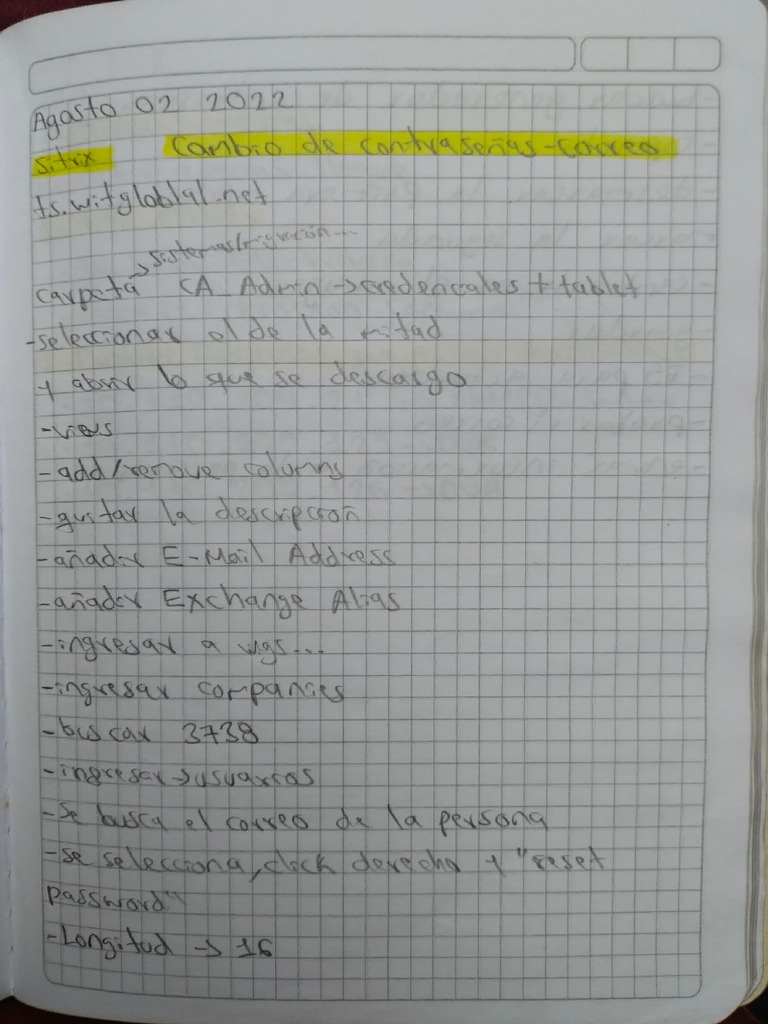 Agosto 02 2022
Sitrix Cambio de contraseñas-correo
ts.witgloblal.net
→ sistemas/migración...
carpeta CA Admin → credenciales + tablet
-seleccionar el de la mitad
+ abrir lo que se descargo
-views
-add/remove columns
-quitar la descripción
-añadir E-Mail Address
-añadir Exchange Alias
-ingresar a wgs...
-ingresar companies
-buscar 3738
-ingresar → usuarios
-Se busca el correo de la persona
-se selecciona, click derecho + "reset
password"
-Longitud → 16